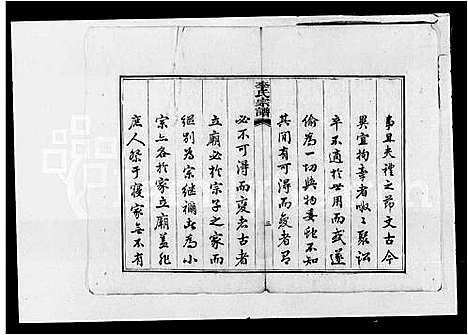 事且夫禮之節文古今
異宜拘牽者呶呶聚訟
卒不適於世用而或遂
偷為一切與物委蛇不知
其間有可得而變者有
李氏宗譜
三
必不可得而變者古者
立廟必於宗子之家而
繼別為宗繼禰此為小
宗亦各於家立廟蓋非
庶人祭于寢家無不有